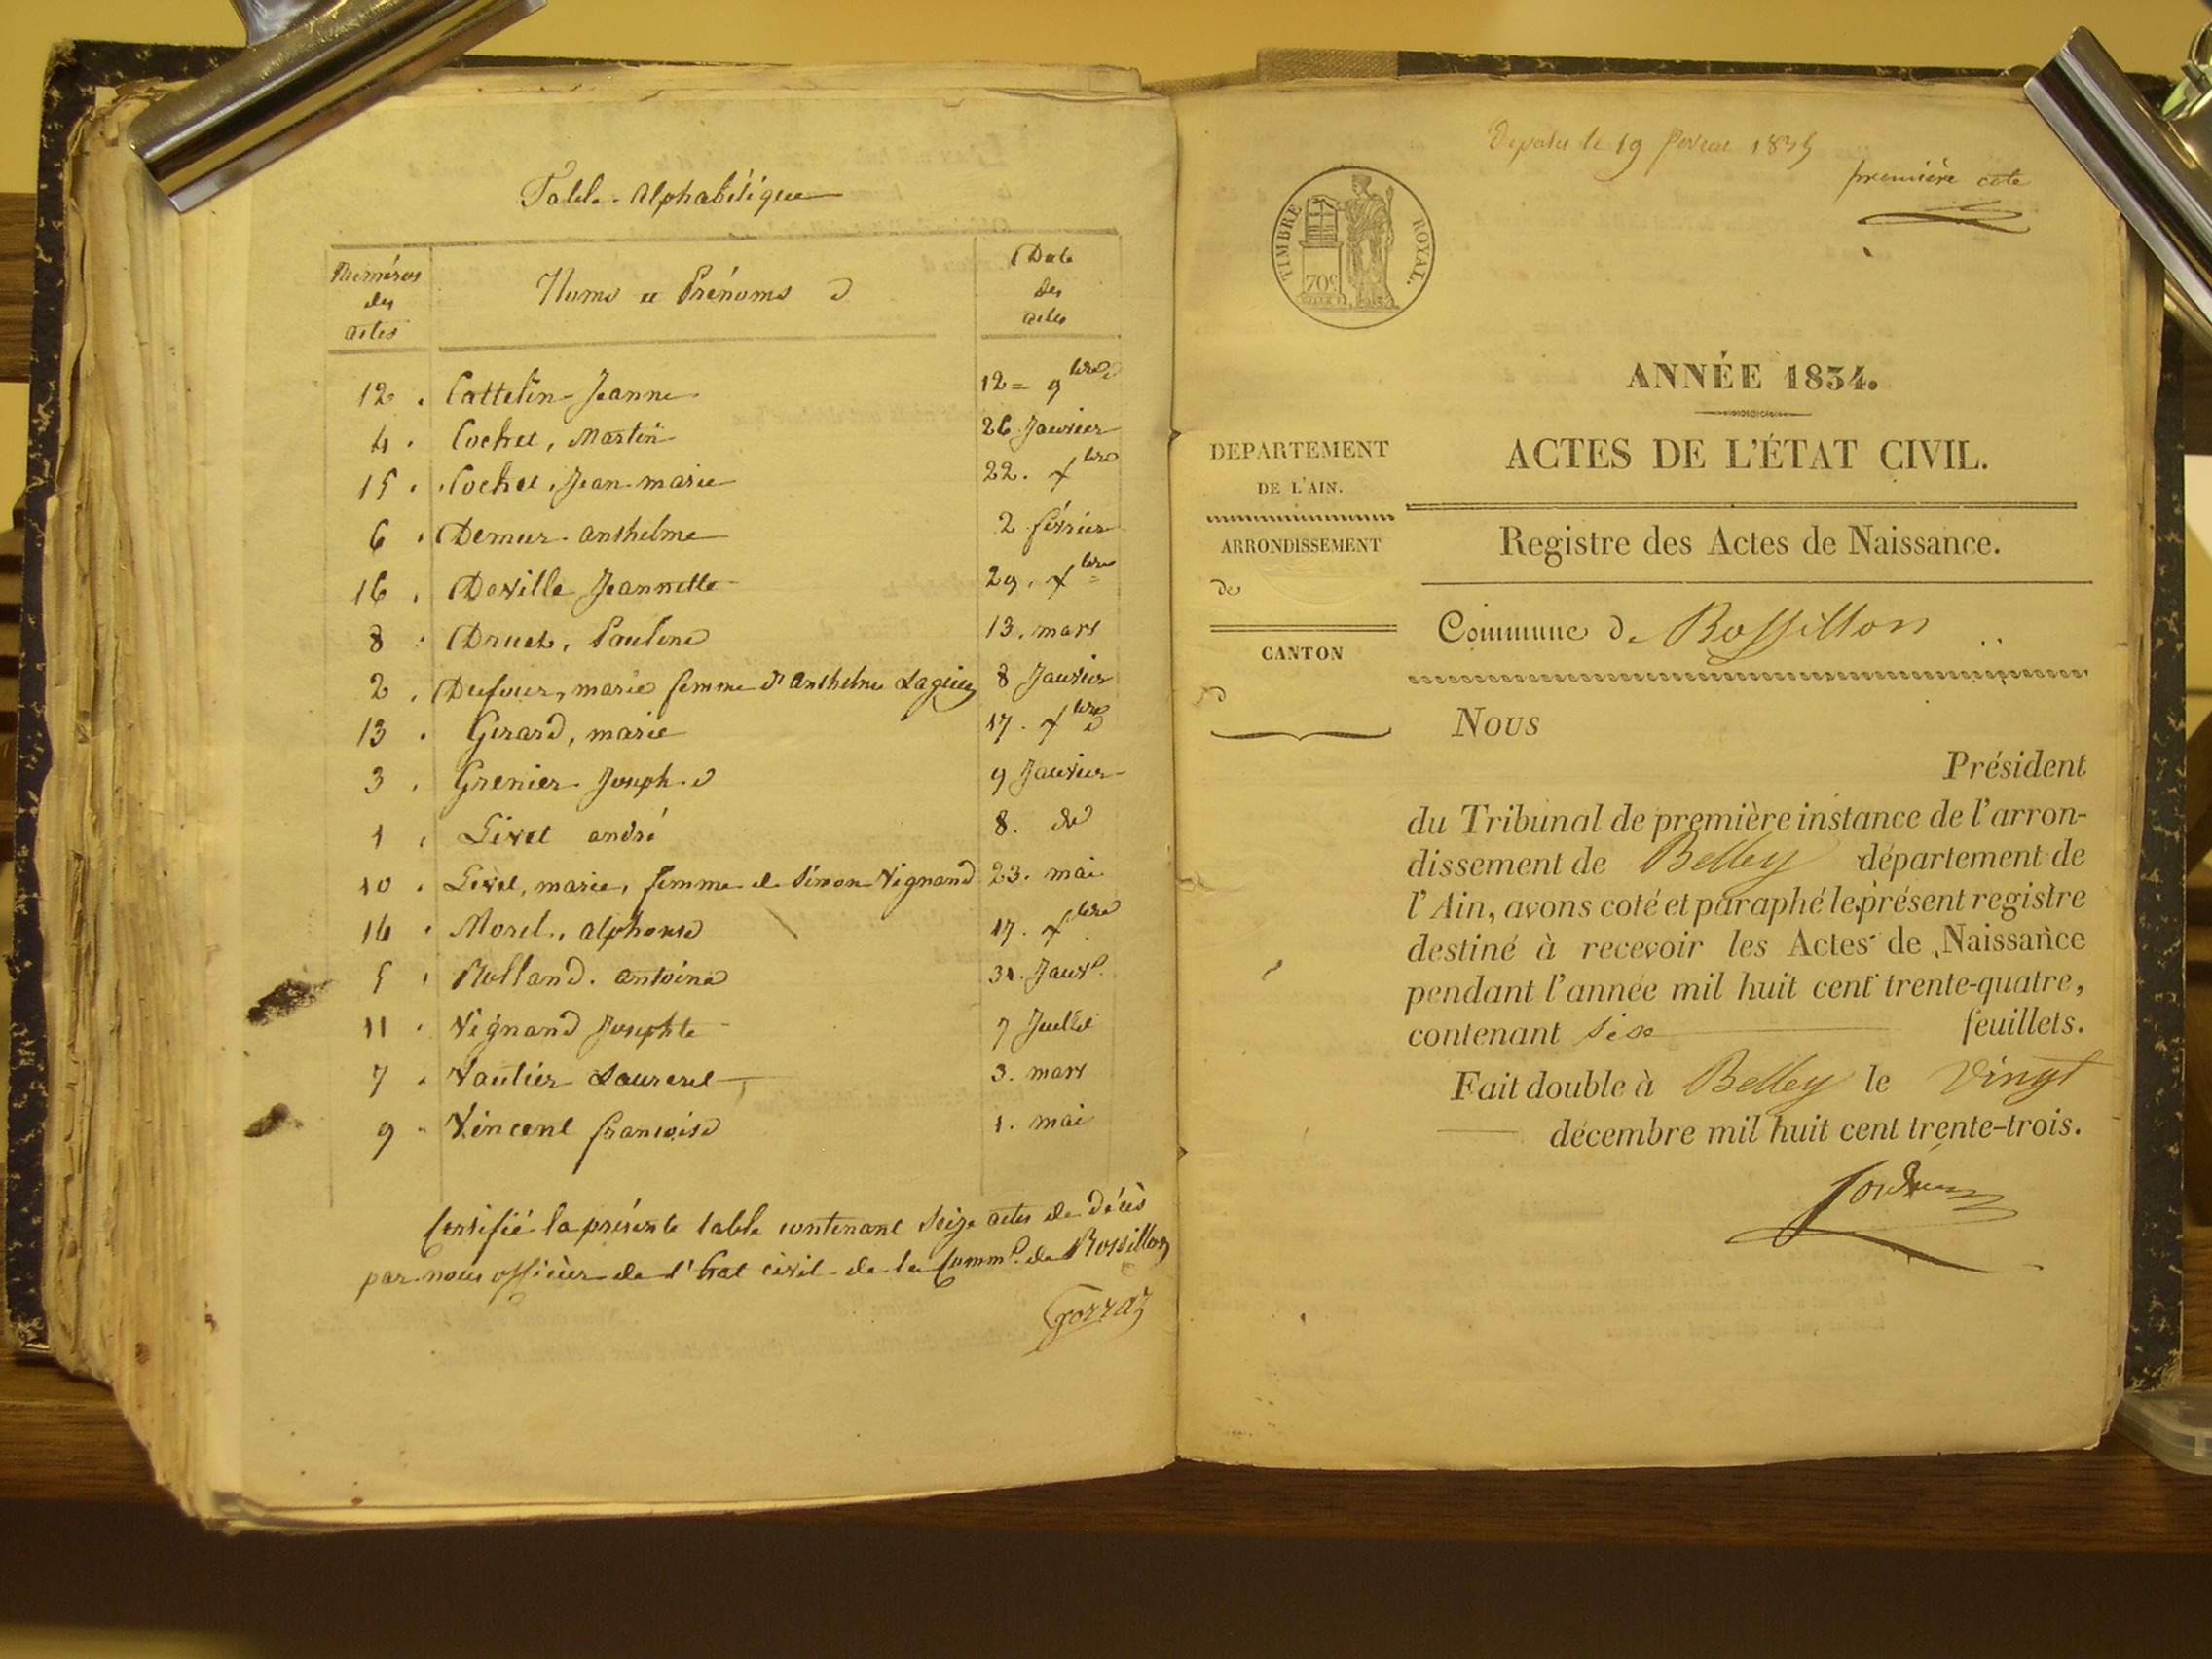 Table Alphabétique
Numéros des actes
Noms et Prénoms
Date des actes
12 . Cattelin Jeanne 12 = 9bre
4 . Cochet, Martin 26 Janvier
15 . Cochet, Jean marie 22. Xbre
6 . Demeur anthelme 2 février
16 . Deville Jeannette 29. Xbre
8 . Druet, Pauline 13. mars
2 . Dufour, marie femme d'anthelme 8 Janvier
13 . Girard, marie 17. Xbre
3 . Grenier Joseph 9 Janvier
1 . Livet andré 8. do
10 . Livet, marie, femme de Simon Vignand 23. mai
14 . Morel, alphonse 17. Xbre
5 . Rolland. antoine 31. Janvr.
11 . Vignand Josephte 7 Juillet
7 . Vautier Laurent 3. mars
9 . Vincent francoise 1. mai
Certifié la présente table contenant Seize actes de décès
par nous officier de l'état civil de la Comme. de Rossillon
Gorraz
Deposé le 19 fevrier 1835
première cote
TIMBRE ROYAL.
70c
ANNÉE 1834.
ACTES DE L'ÉTAT CIVIL.
DEPARTEMENT
DE L'AIN.
ARRONDISSEMENT
de
CANTON
d
Registre des Actes de Naissance.
Commune de Rossillon
Nous
Président
du Tribunal de première instance de l'arron-
dissement de Belley département de
l'Ain, avons coté et paraphé le présent registre
destiné à recevoir les Actes de Naissance
pendant l'année mil huit cent trente-quatre,
contenant six feuillets.
Fait double à Belley le vingt
décembre mil huit cent trente-trois.